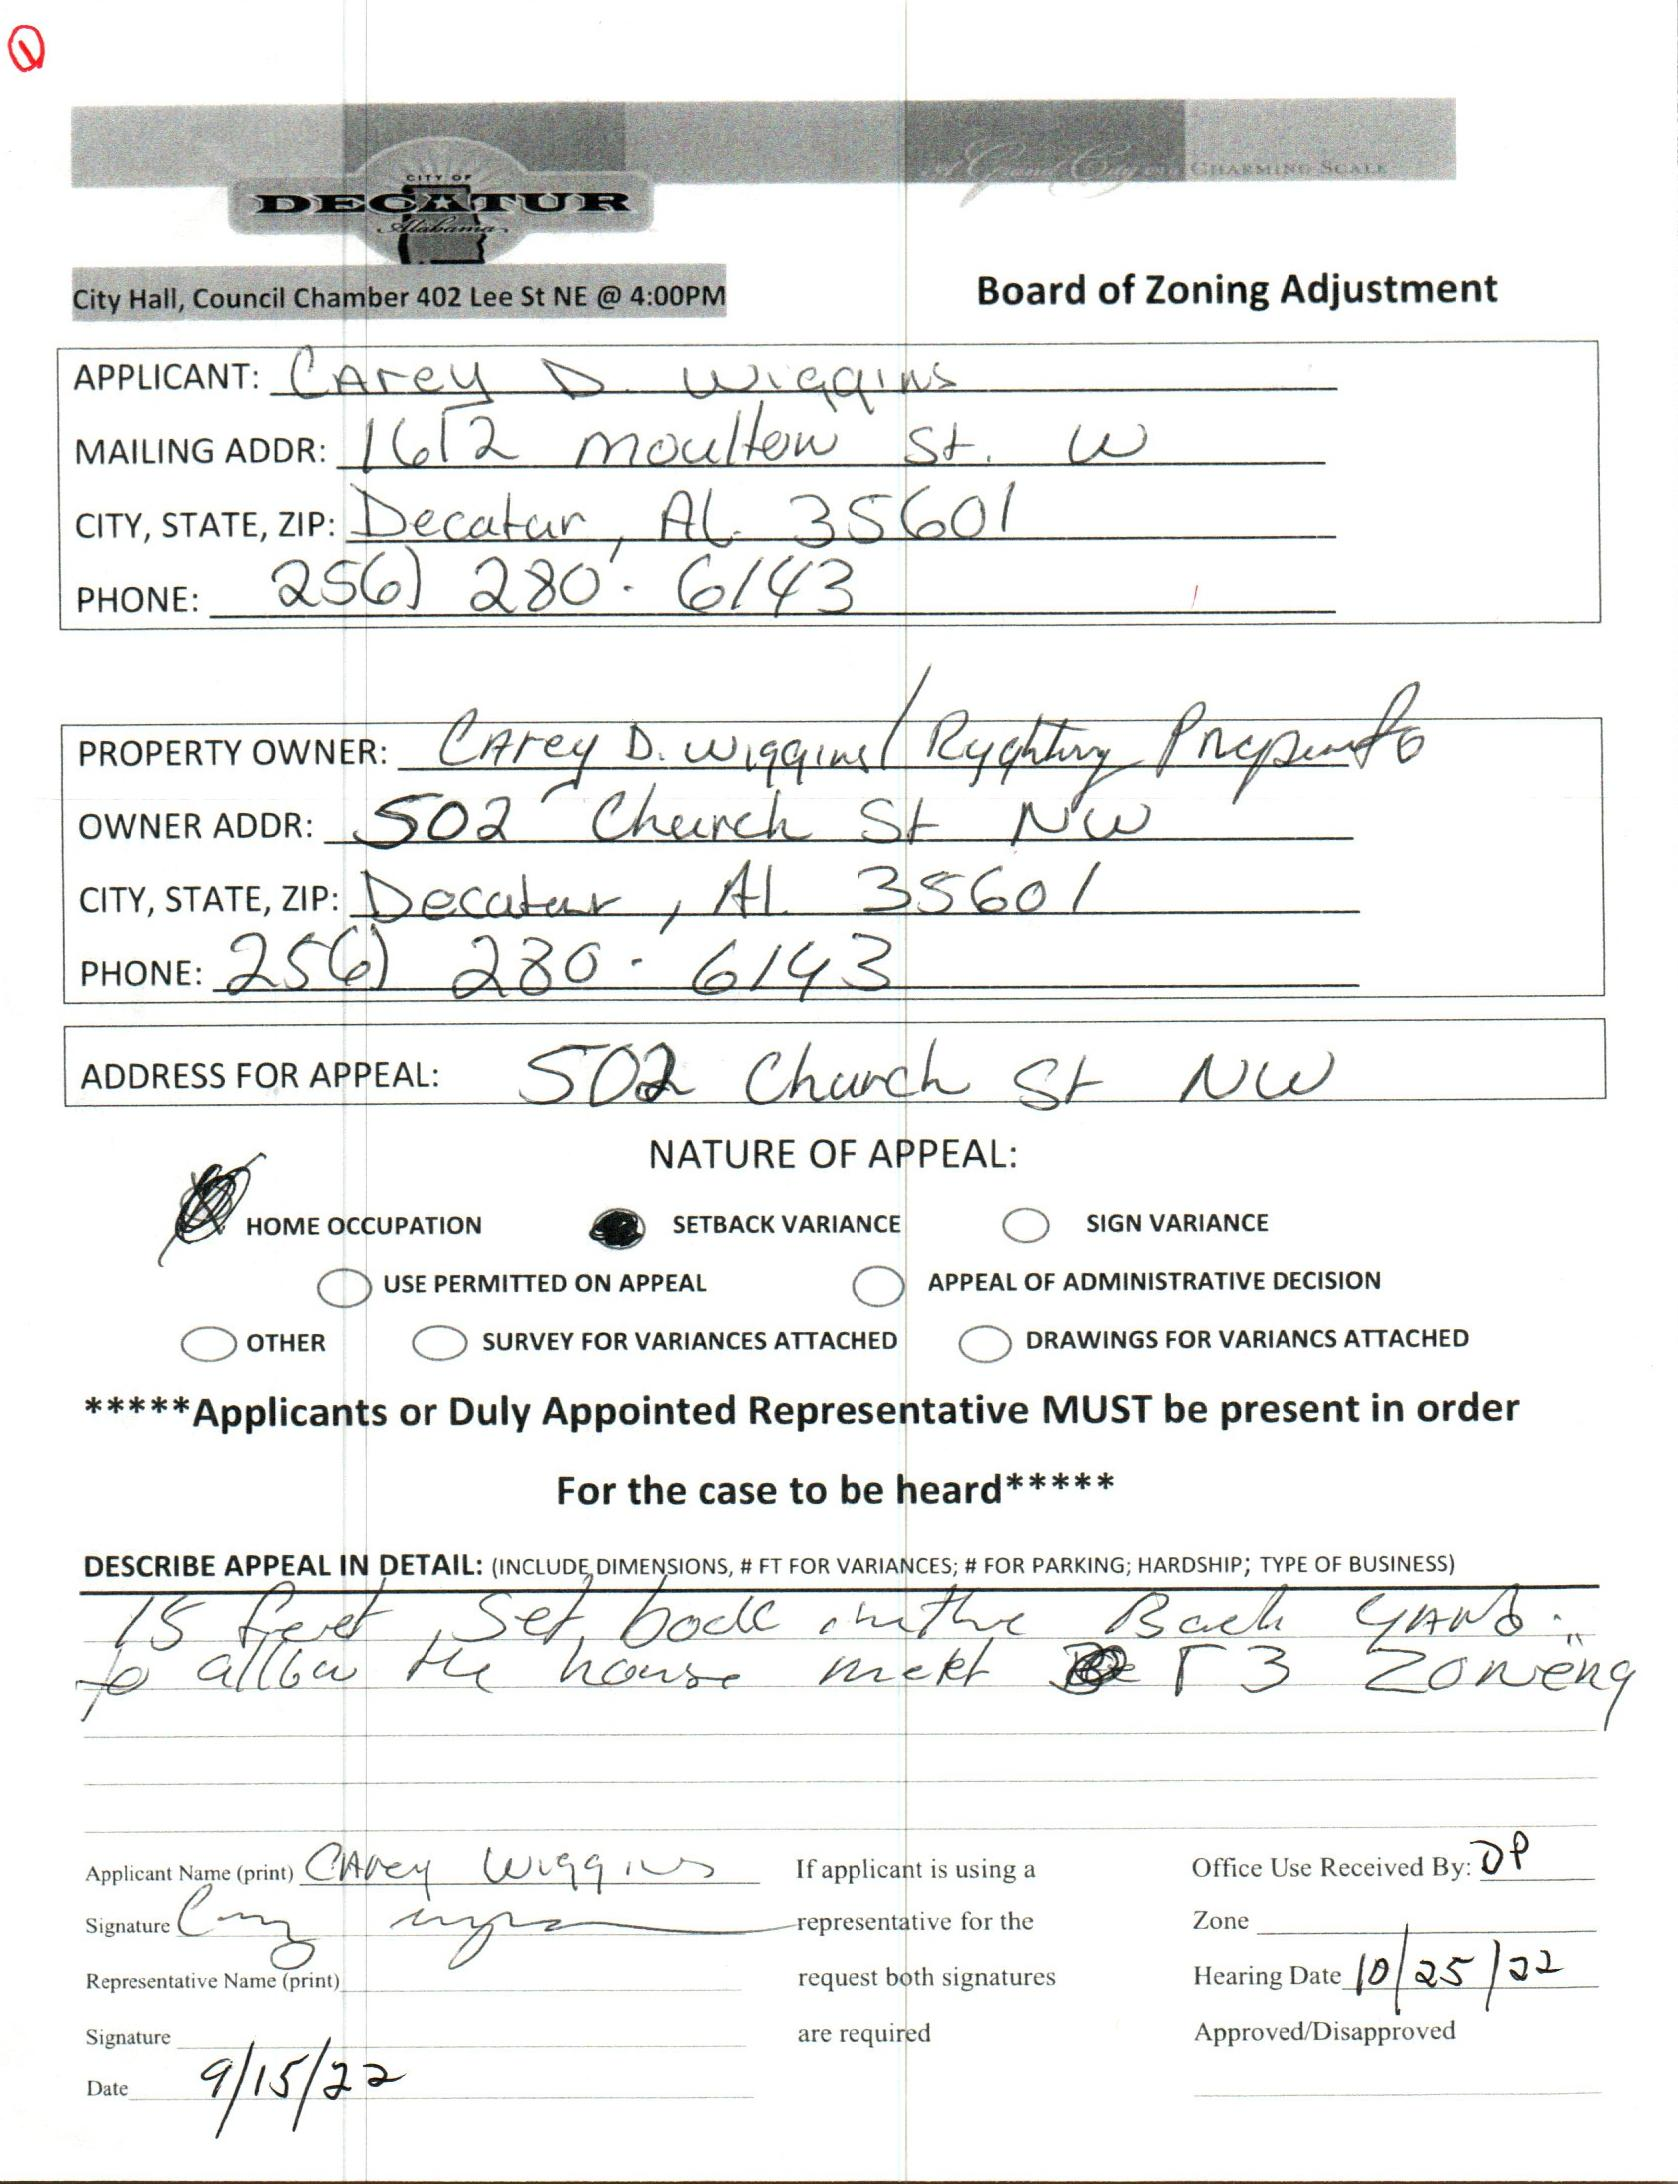 1
CITY OF
DECATUR
Alabama
A Grand City on a CHARMING SCALE
City Hall, Council Chamber 402 Lee St NE @ 4:00PM
Board of Zoning Adjustment
APPLICANT: CArey D. Wiggins
MAILING ADDR: 1612 Moulton St. W
CITY, STATE, ZIP: Decatur, AL 35601
PHONE: 256) 280-6143
PROPERTY OWNER: CArey D. Wiggins/
OWNER ADDR: 502 Church St NW
CITY, STATE, ZIP: Decatur, AL 35601
PHONE: 256) 280-6143
ADDRESS FOR APPEAL: 502 Church St NW
NATURE OF APPEAL:
HOME OCCUPATION SETBACK VARIANCE SIGN VARIANCE
USE PERMITTED ON APPEAL APPEAL OF ADMINISTRATIVE DECISION
OTHER SURVEY FOR VARIANCES ATTACHED DRAWINGS FOR VARIANCS ATTACHED
*****Applicants or Duly Appointed Representative MUST be present in order
For the case to be heard*****
DESCRIBE APPEAL IN DETAIL: (INCLUDE DIMENSIONS, # FT FOR VARIANCES; # FOR PARKING; HARDSHIP; TYPE OF BUSINESS)
15 feet Set back in the Back YARD.
to allow the house meet 3 Zoneing
Applicant Name (print) CArey Wiggins If applicant is using a Office Use Received By: DP
Signature representative for the Zone
Representative Name (print) request both signatures Hearing Date 10/25/22
Signature are required Approved/Disapproved
Date 9/15/22